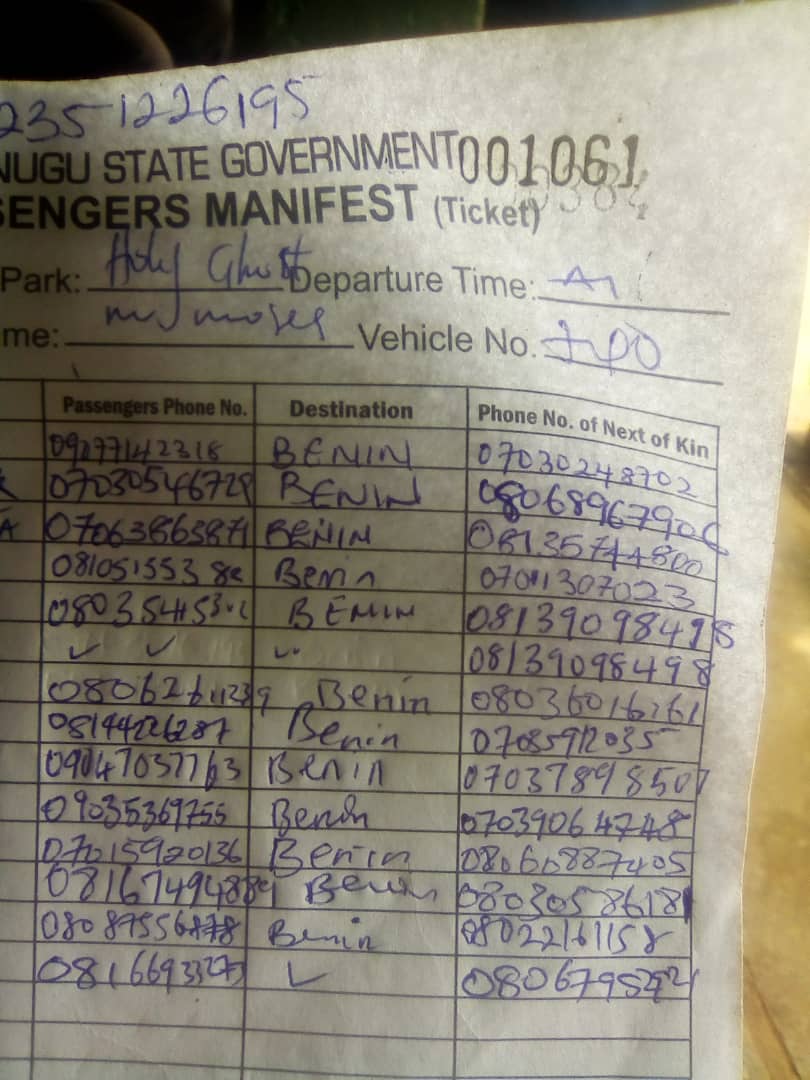 2351226195
NUGU STATE GOVERNMENT 001061
SENGERS MANIFEST (Ticket)
Park: Holy Ghost Departure Time:
me: moses Vehicle No.
Passengers Phone No. Destination Phone No. of Next of Kin
09077142318 BENIN 07030248702
07030546728 BENIN 08068967906
07063863871 BENIN 08135744800
Benin 07011307023
BENIN 08139098498
✓ ✓ 08139098498
Benin 08036016261
08144226287 Benin 07085912035
09047037763 Benin 07037898507
09035369755 Benin 07039064748
07015920136 Benin 08060887405
08167494889 Benin 08030586181
Benin 08022161158
✓